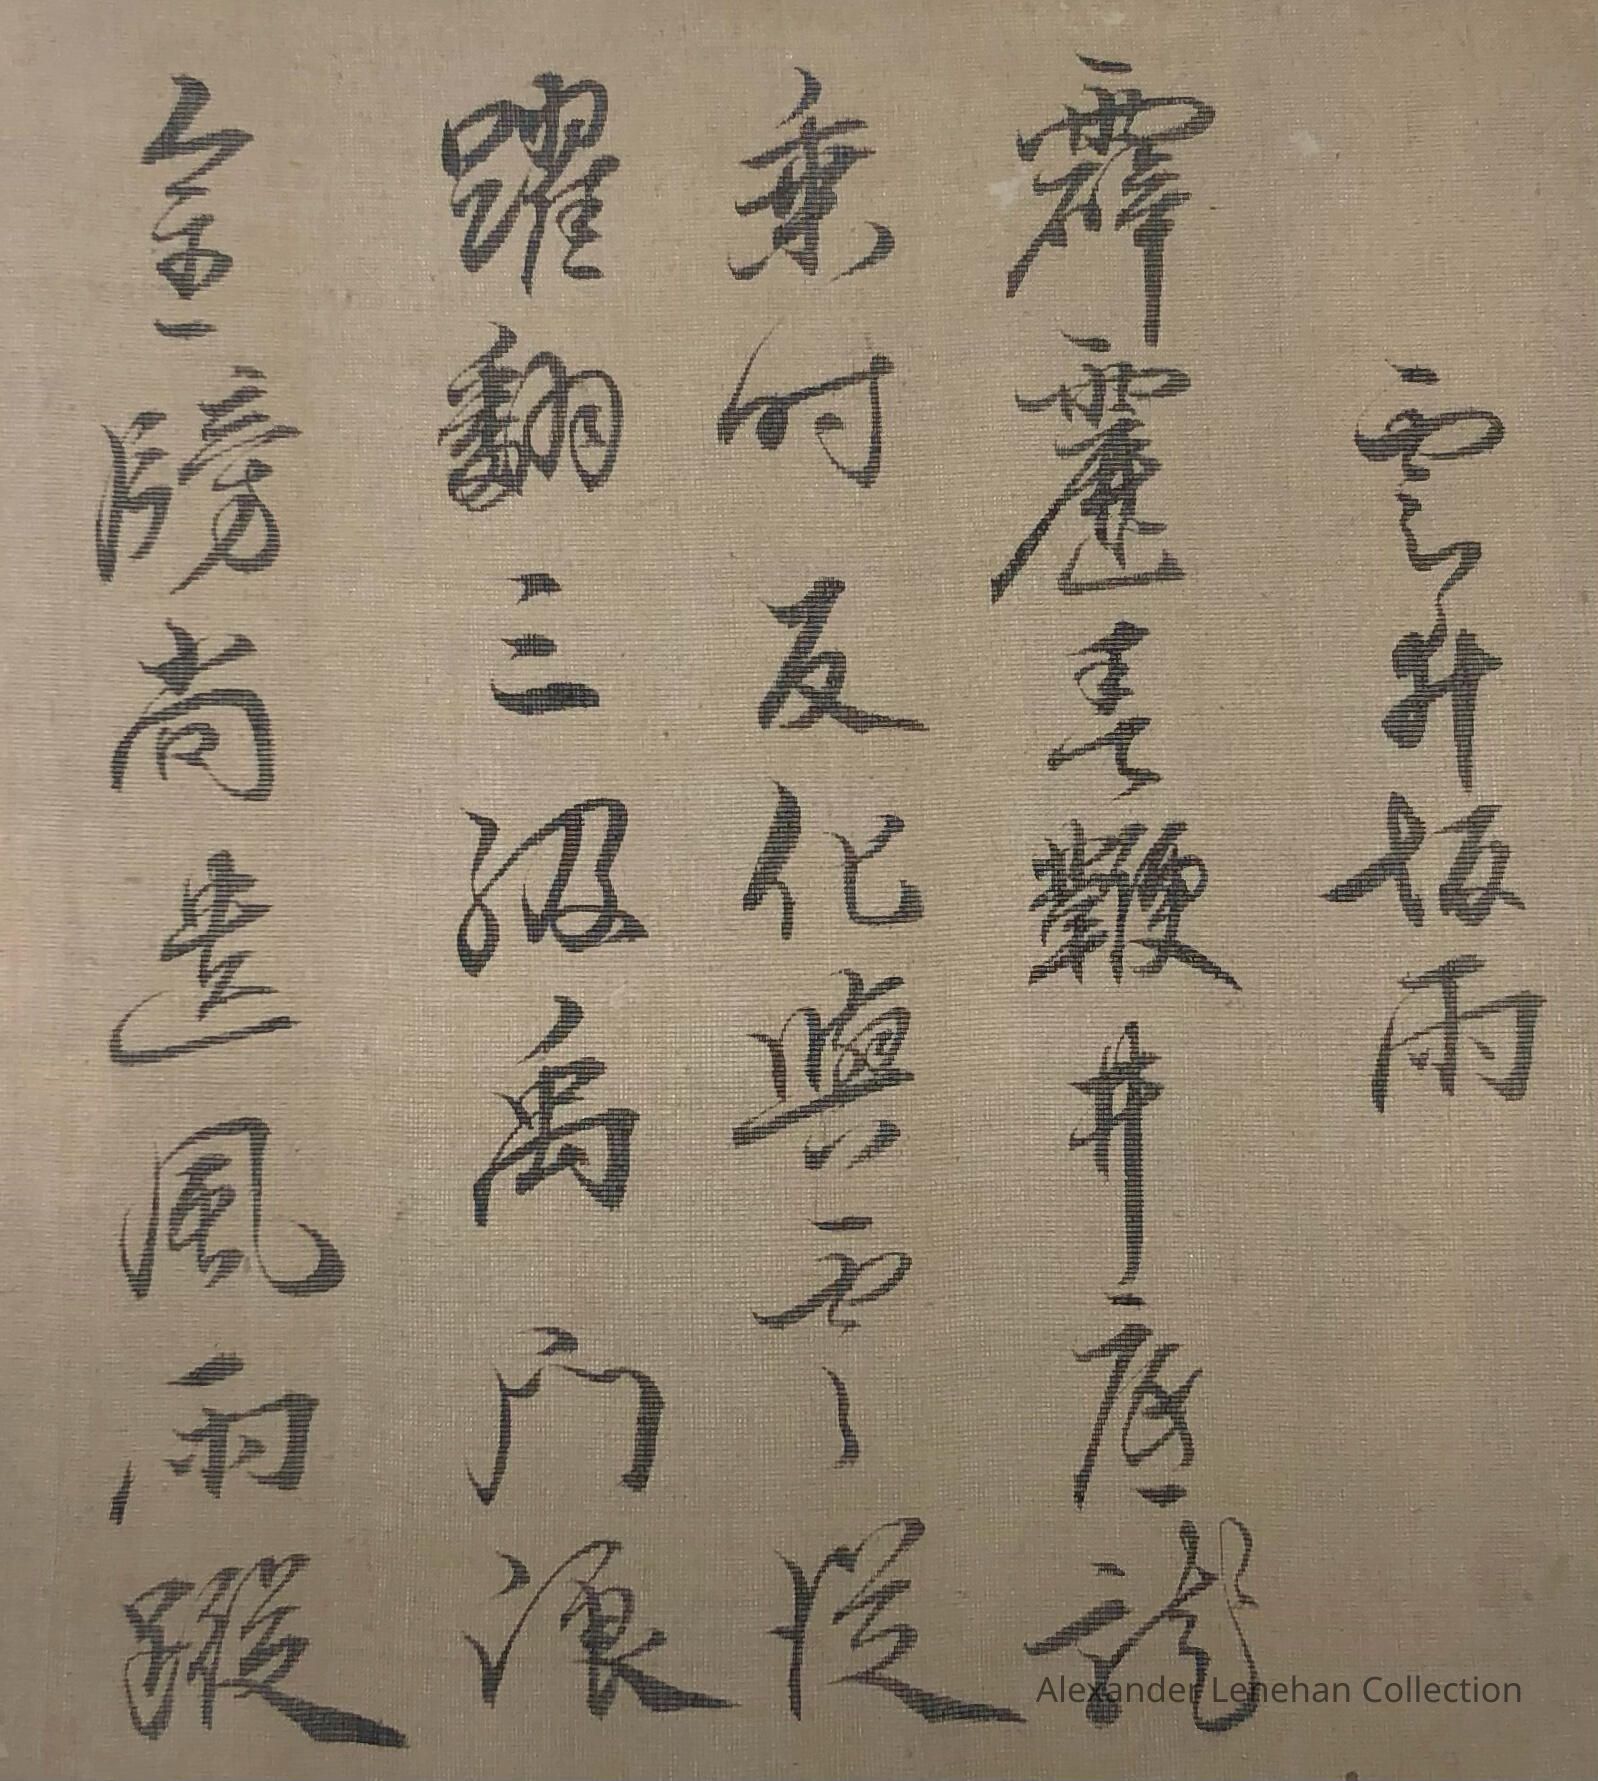 雲井坂雨
霹靂春鞭井底龍
乗時反化與雲従
躍翻三級禹門浪
金牓尚遺風雨蹤
Alexander Lenehan Collection